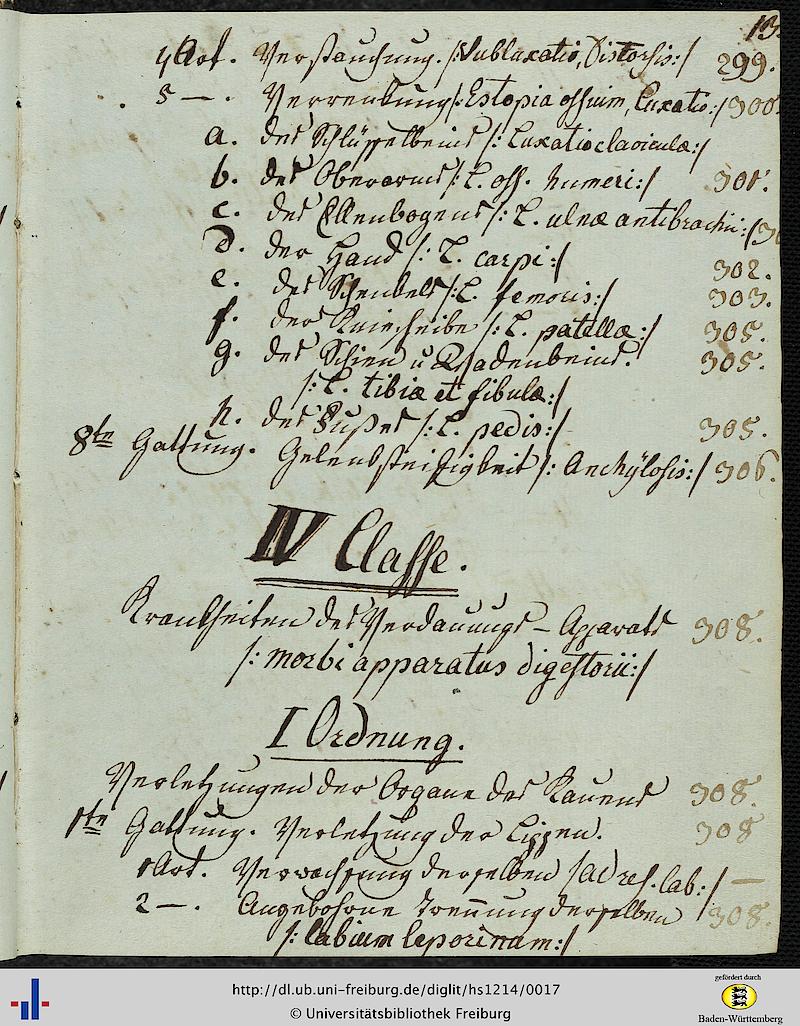 13.
4 Art. Verstauchung. /: Sublaxatio, Distorsio :/ 299.
5 — . Verrenkung /: Ectopia ossium, Luxatio :/ 300.
a. des Schlüsselbeins /: Luxatio claviculæ :/
b. des Oberarms /: L. oss. humeri :/ 301.
c. des Ellenbogens /: L. ulnæ antibrachii :/
d. der Hand /: L. carpi :/ 302.
e. des Schenkels /: L. femoris :/ 303.
f. der Kniescheibe /: L. patellæ :/ 305.
g. des Schien u Wadenbeins. 305.
/: L. tibiæ et fibulæ :/
h. des Fußes /: L. pedis :/ 305.
8te Gattung. Gelenksteifigkeit /: Anchÿlosis :/ 306.
IV Classe.
Krankheiten des Verdauungs-Apparats 308.
/: morbi apparatus digestorii :/
I Ordnung.
Verletzungen der Organe des Kauens 308.
1te Gattung. Verletzung der Lippen. 308
1 Art. Verwachsung derselben /: lab :/ —
2 — . Angebohrne Trennung derselben 308.
/: labium leporinum :/
http://dl.ub.uni-freiburg.de/diglit/hs1214/0017
© Universitätsbibliothek Freiburg
gefördert durch
Baden-Württemberg